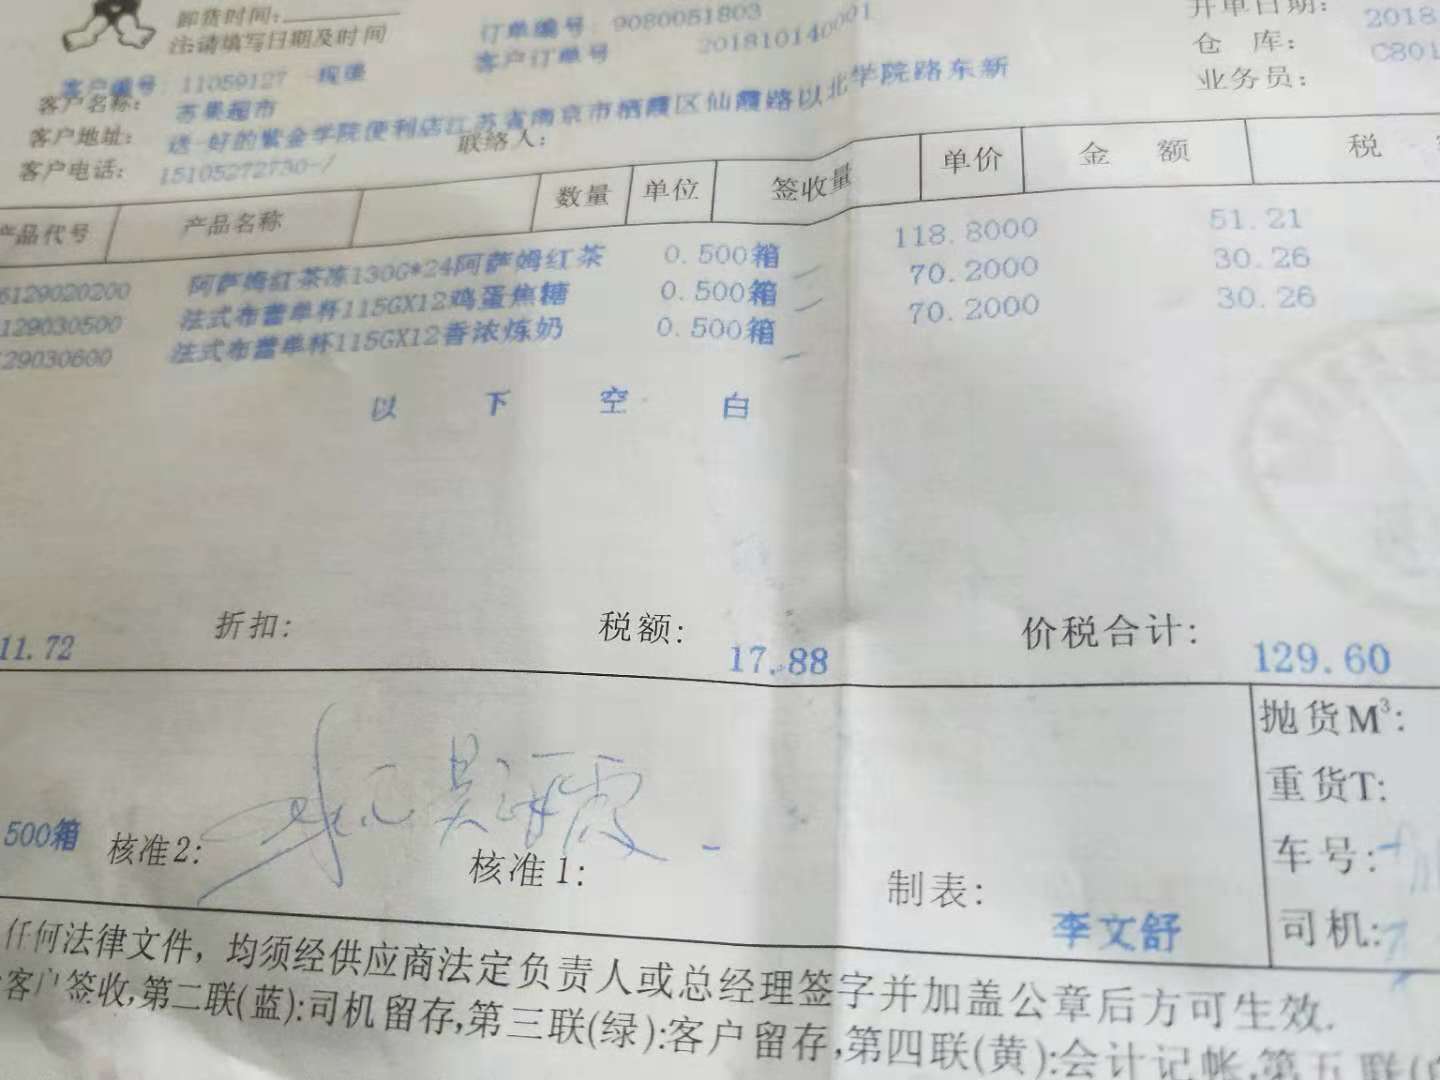 卸货时间:
注:请填写日期及时间
订单编号 9080051803
客户订单号 201810140001
开单日期: 2018
仓 库: C801
业务员:
客户编号 11059127
客户名称: 苏果超市
客户地址: 送-好的紫金学院便利店江苏省南京市栖霞区仙霞路以北学院路东新
客户电话: 15105272730-/ 联络人:
产品代号 产品名称 数量 单位 签收量 单价 金 额 税
6129020200 阿萨姆红茶冻130G*24阿萨姆红茶 0.500箱 118.8000 51.21
129030500 法式布蕾单杯115GX12鸡蛋焦糖 0.500箱 70.2000 30.26
29030600 法式布蕾单杯115GX12香浓炼奶 0.500箱 70.2000 30.26
以 下 空 白
11.72 折扣: 税额: 17.88 价税合计: 129.60
抛货M³:
重货T:
500箱 核准2: 核准1: 制表: 李文舒
车号:
司机:
任何法律文件，均须经供应商法定负责人或总经理签字并加盖公章后方可生效.
客户签收,第二联(蓝):司机留存,第三联(绿):客户留存,第四联(黄):会计记帐,第五联